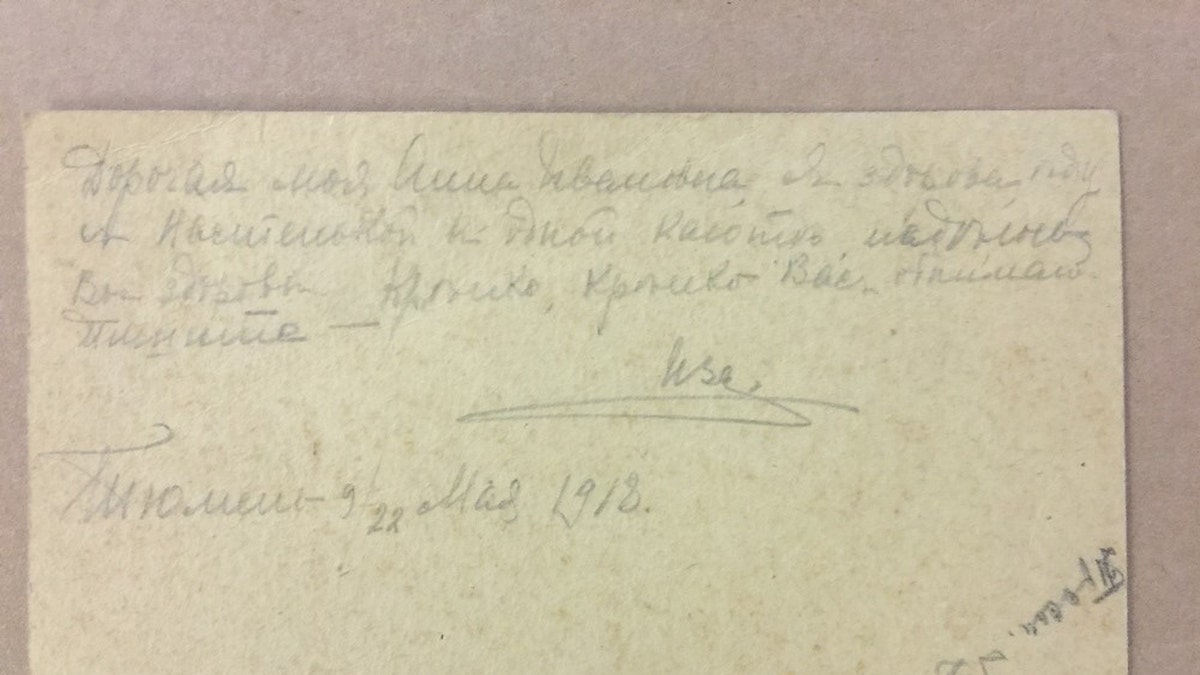 Дорогая моя Анна Ивановна я здорова еду
с Настенькой в одной каютѣ надѣюсь
Вы здоровы Крѣпко, крѣпко Вас обнимаю.
Пишите —
Иза.
Тюмень 9/22 Мая 1918.